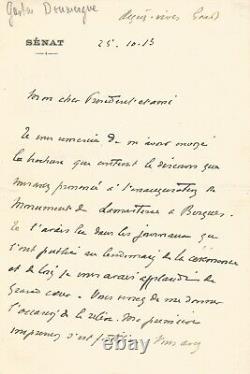 Gaston Doumergue
Aigues-vives Gard
SÉNAT
25-10-13
Mon cher Président et ami
Je vous remercie de m'avoir envoyé
la brochure que contient le discours que
vous avez prononcé à l'inauguration du
Monument de Lamartine à Bergues.
Je l'avais lu dans les journaux qui
l'ont publié au lendemain de la cérémonie
et de loin je vous avais applaudi de
grand cœur. Vous venez de me donner
l'occasion de le relire. Ma première
impression s'est
Vous avez